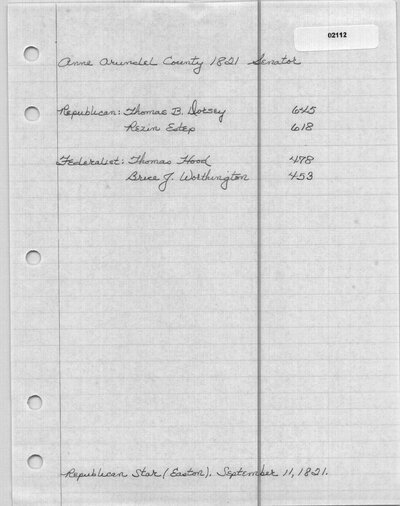 02112
Anne Arundel County 1821 Senator
Republican: Thomas B. Dorsey 645
Rezin Estep 618
Federalist: Thomas Hood 478
Brice J. Worthington 453
Republican Star (Easton), September 11, 1821.